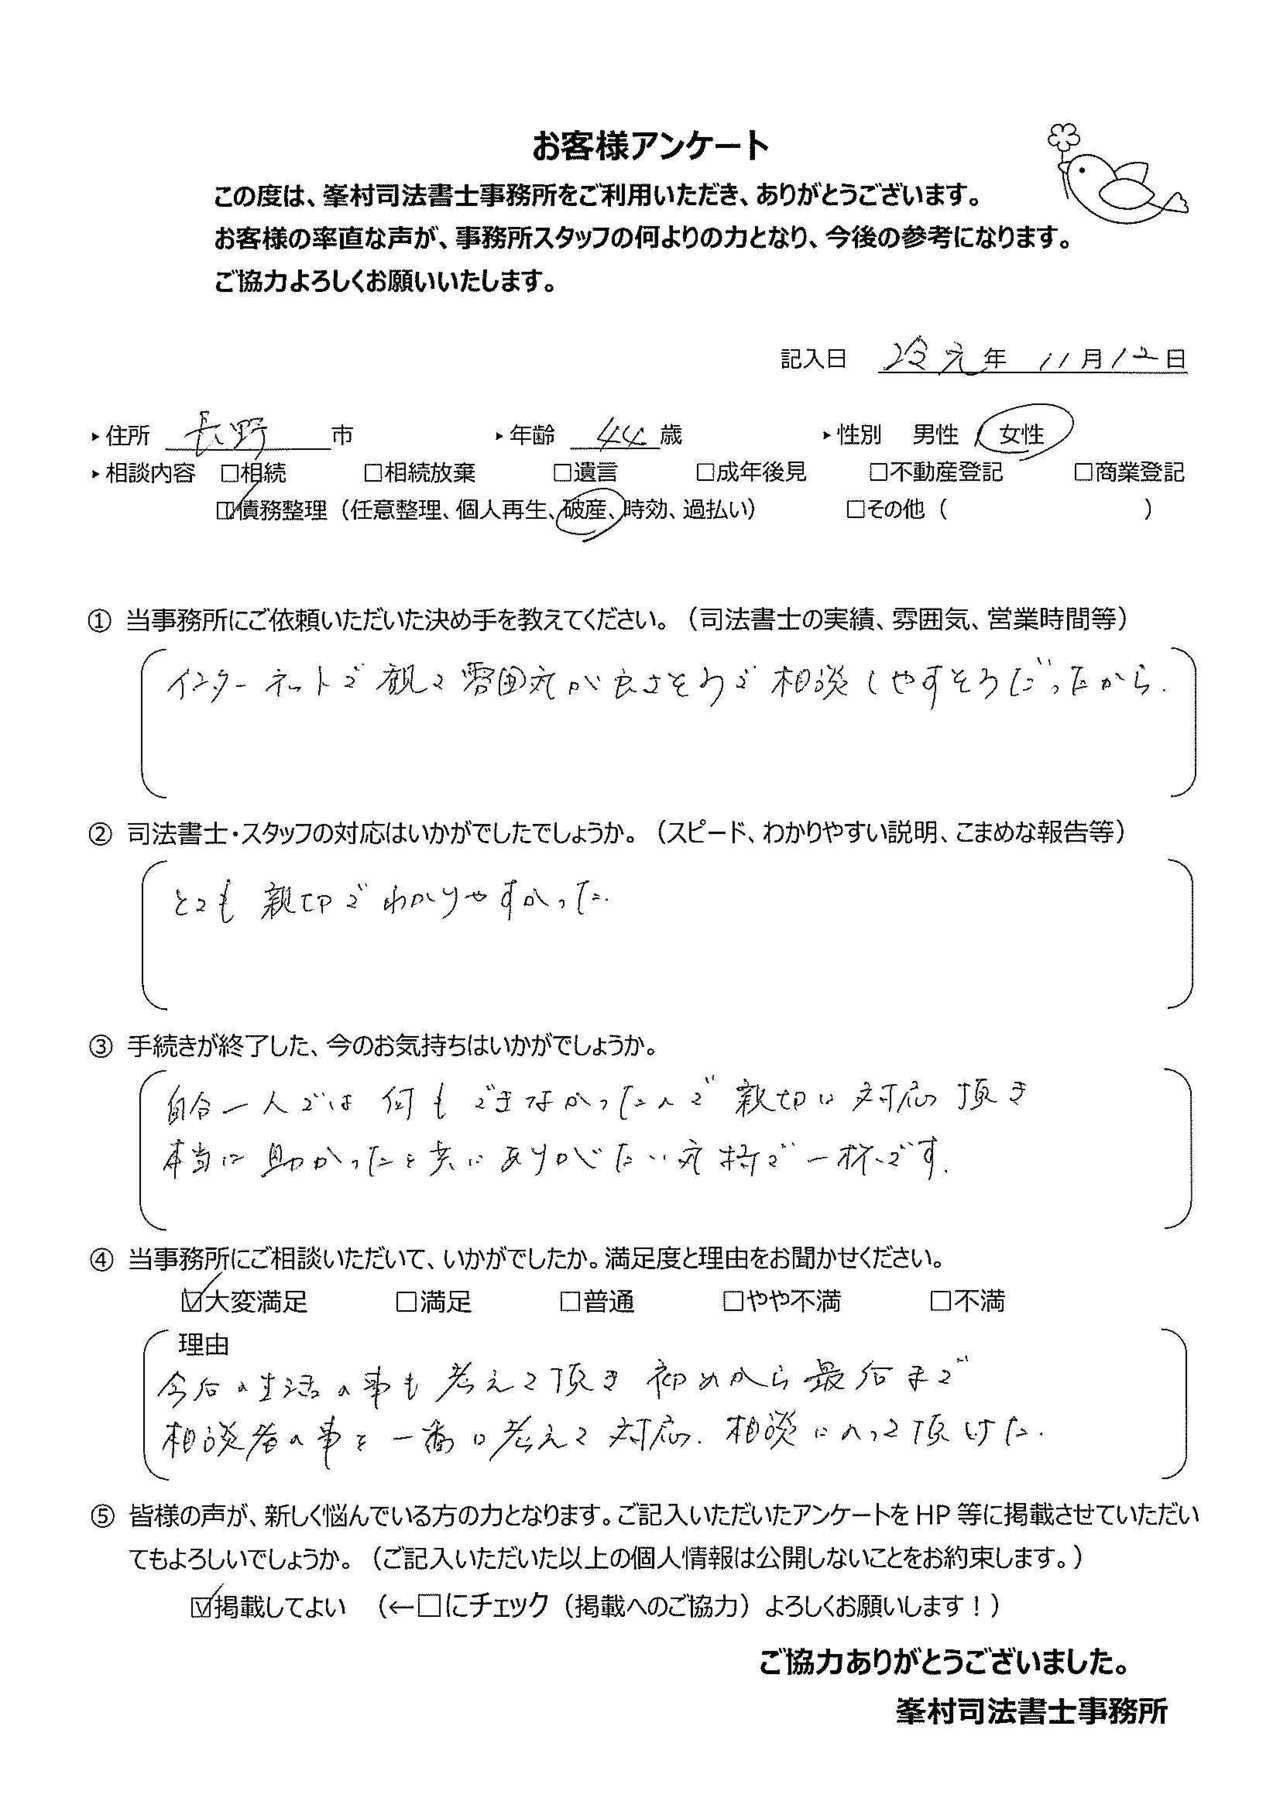 お客様アンケート
この度は、峯村司法書士事務所をご利用いただき、ありがとうございます。
お客様の率直な声が、事務所スタッフの何よりの力となり、今後の参考になります。
ご協力よろしくお願いいたします。
記入日 令元年 11月12日
▸住所 長野 市 ▸年齢 44歳 ▸性別 男性 / 女性
▸相談内容 □相続 □相続放棄 □遺言 □成年後見 □不動産登記 □商業登記
☑債務整理（任意整理、個人再生、破産、時効、過払い） □その他（ ）
① 当事務所にご依頼いただいた決め手を教えてください。（司法書士の実績、雰囲気、営業時間等）
インターネットで観て雰囲気が良さそうで相談しやすそうだったから.
② 司法書士・スタッフの対応はいかがでしたでしょうか。（スピード、わかりやすい説明、こまめな報告等）
とても親切でわかりやすかった.
③ 手続きが終了した、今のお気持ちはいかがでしょうか。
自分一人では何もできなかったんで親切に対応頂き
本当に助かったと共にありがたい気持で一杯です.
④ 当事務所にご相談いただいて、いかがでしたか。満足度と理由をお聞かせください。
☑大変満足 □満足 □普通 □やや不満 □不満
理由
今后の生活の事も考えて頂き初めから最后まで
相談者の事を一番に考えて対応.相談にのって頂けた.
⑤ 皆様の声が、新しく悩んでいる方の力となります。ご記入いただいたアンケートをHP等に掲載させていただい
てもよろしいでしょうか。（ご記入いただいた以上の個人情報は公開しないことをお約束します。）
☑掲載してよい （←□にチェック（掲載へのご協力）よろしくお願いします！）
ご協力ありがとうございました。
峯村司法書士事務所